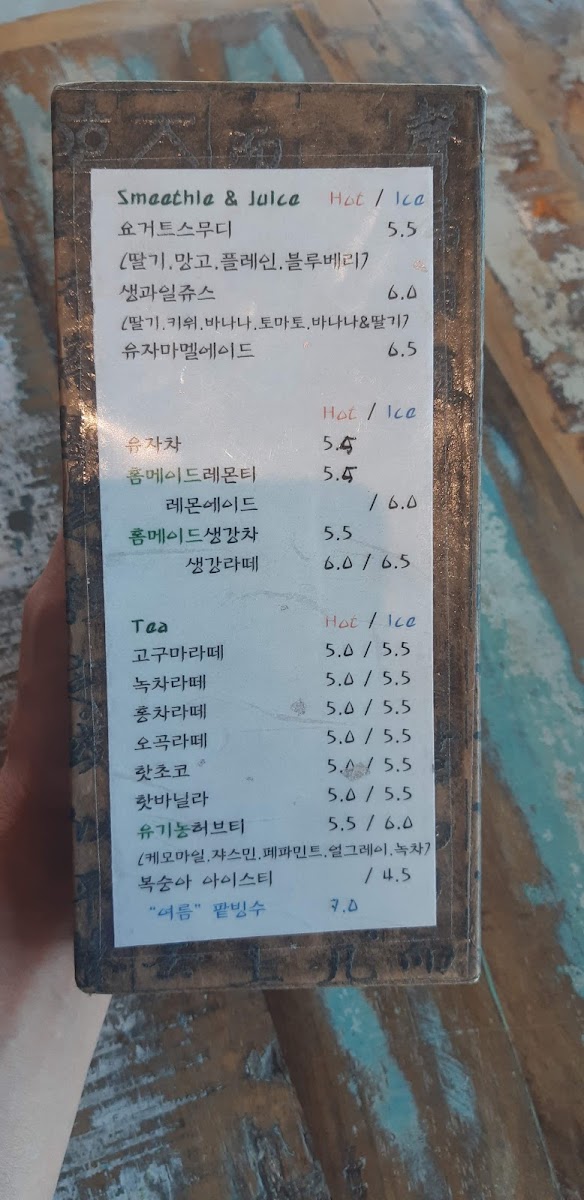 Smeethie & Juice Hot / Ice
요거트스무디 5.5
(딸기.망고.플레인.블루베리)
생과일쥬스 6.0
(딸기.키위.바나나.토마토.바나나&딸기)
유자마멜에이드 6.5
Hot / Ice
유자차 5.5
홈메이드레몬티 5.5
레몬에이드 / 6.0
홈메이드생강차 5.5
생강라떼 6.0 / 6.5
Tea Hot / Ice
고구마라떼 5.0 / 5.5
녹차라떼 5.0 / 5.5
홍차라떼 5.0 / 5.5
오곡라떼 5.0 / 5.5
핫초코 5.0 / 5.5
핫바닐라 5.0 / 5.5
유기농허브티 5.5 / 6.0
(케모마일.쟈스민.페파민트.얼그레이.녹차)
복숭아 아이스티 / 4.5
"여름" 팥빙수 7.0